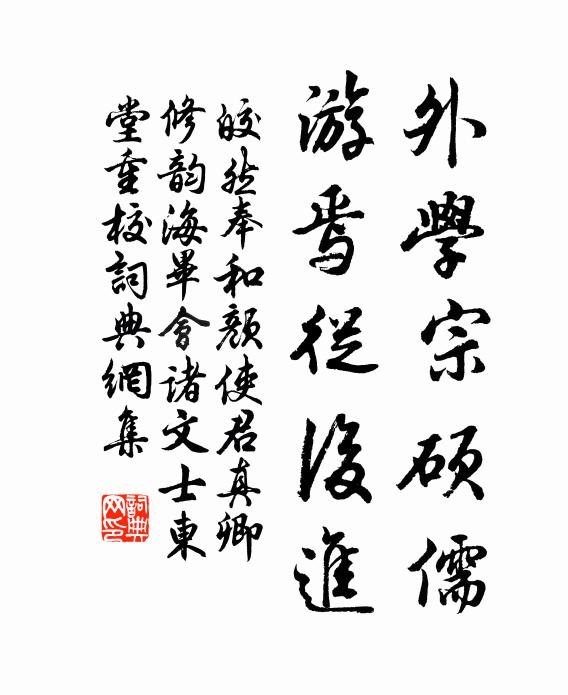 外學宗碩儒
游焉從後進
皎然奉和顏使君真卿
修韵海畢會諸文士東
堂重校詞典網集
詞典网印